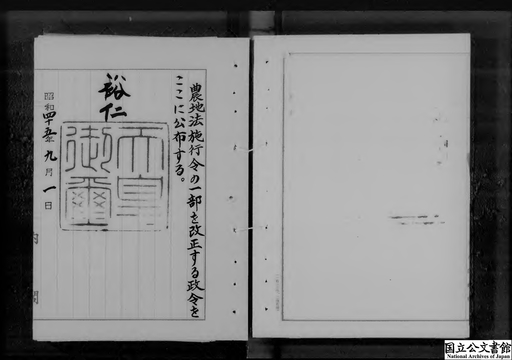 農地法施行令の一部を改正する政令を
ここに公布する。
裕仁
天皇御璽
昭和四十五年九月一日
内閣
国立公文書館
National Archives of Japan